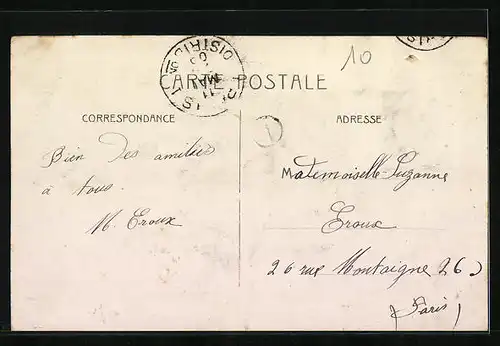 10
CARTE POSTALE
CORRESPONDANCE
Bien des amitiés
à tous.
M. Eroux
ADRESSE
Mademoiselle Suzanne
Eroux
26 rue Montaigne 26
(Paris)
DISTRIB
MAI
11